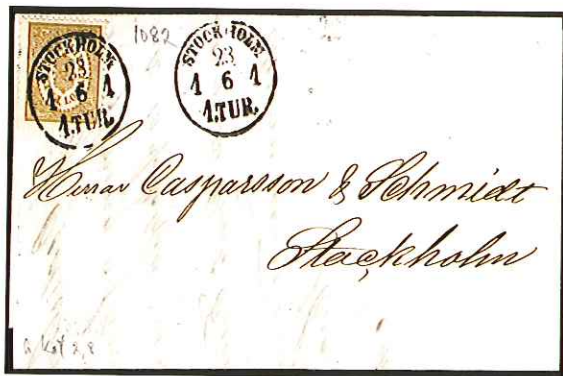 1082
STOCKHOLM
23
1 6 1
1.TUR.
STOCKHOLM
23
1 6 1
1.TUR.
Herrar Casparsson & Schmidt
Stockholm